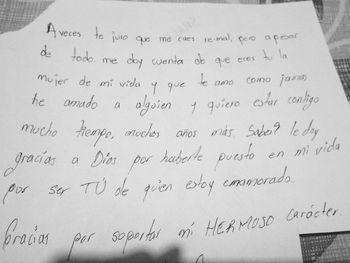 A veces te juro que me caes re-mal, pero a pesar
de todo me doy cuenta de que eres tu la
mujer de mi vida y que te amo como jamas
he amado a alguien y quiero estar contigo
mucho tiempo, muchos años más. Sabes? le doy
gracias a Dios por haberte puesto en mi vida
por ser TÚ de quien estoy enamorado.
Gracias por soportar mi HERMOSO carácter.